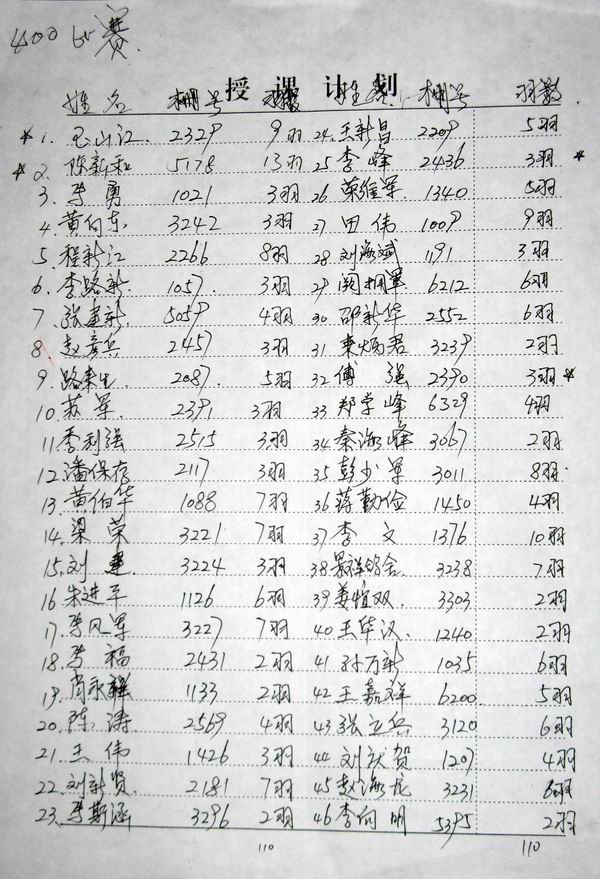 400 比赛
授 课 计 划
姓 名 棚号 羽数 姓名 棚号 羽数
* 1. 玉山江 2329 9羽 24 王新昌 2209 5羽
* 2. 陈新和 5178 13羽 25 李峰 2436 3羽 *
3. 李勇 1021 3羽 26 荣维军 1340 5羽
4 黄向东 3242 3羽 27 田伟 1009 9羽
5. 程新江 2266 8羽 28 刘海斌 1191 3羽
6. 李路新 1057 3羽 29 阎拥军 6212 6羽
7 张建新 5059 4羽 30 邵新华 2552 6羽
8 赵彦兵 2457 3羽 31 炳君 3239 2羽
9. 路来生 2087 5羽 32 傅强 2390 3羽 *
10 苏军 2391 3羽 33 郑学峰 6329 4羽
11 季利强 2515 3羽 34 秦海峰 3067 2羽
12 潘保存 2117 3羽 35 彭少军 3011 8羽
13 黄伯华 1088 7羽 36 蒋勤俭 1450 4羽
14. 梁荣 3221 7羽 37 李文 1376 10羽
15. 刘建 3224 3羽 38 3238 7羽
16 朱进平 1126 6羽 39 姜恒双 3303 2羽
17 李风军 3227 7羽 40 王华汉 1240 2羽
18 李福 2431 2羽 41 孙万新 1035 6羽
19 肖永辉 1133 2羽 42 王嘉祥 6200 5羽
20. 陈涛 2569 4羽 43 张立兵 3120 6羽
21 王伟 1426 3羽 44 刘庆贺 1207 4羽
22. 刘新贤 2181 7羽 45 赵海龙 3231 6羽
23. 李斯涵 3296 2羽 46 李向明 5395 2羽
110 110